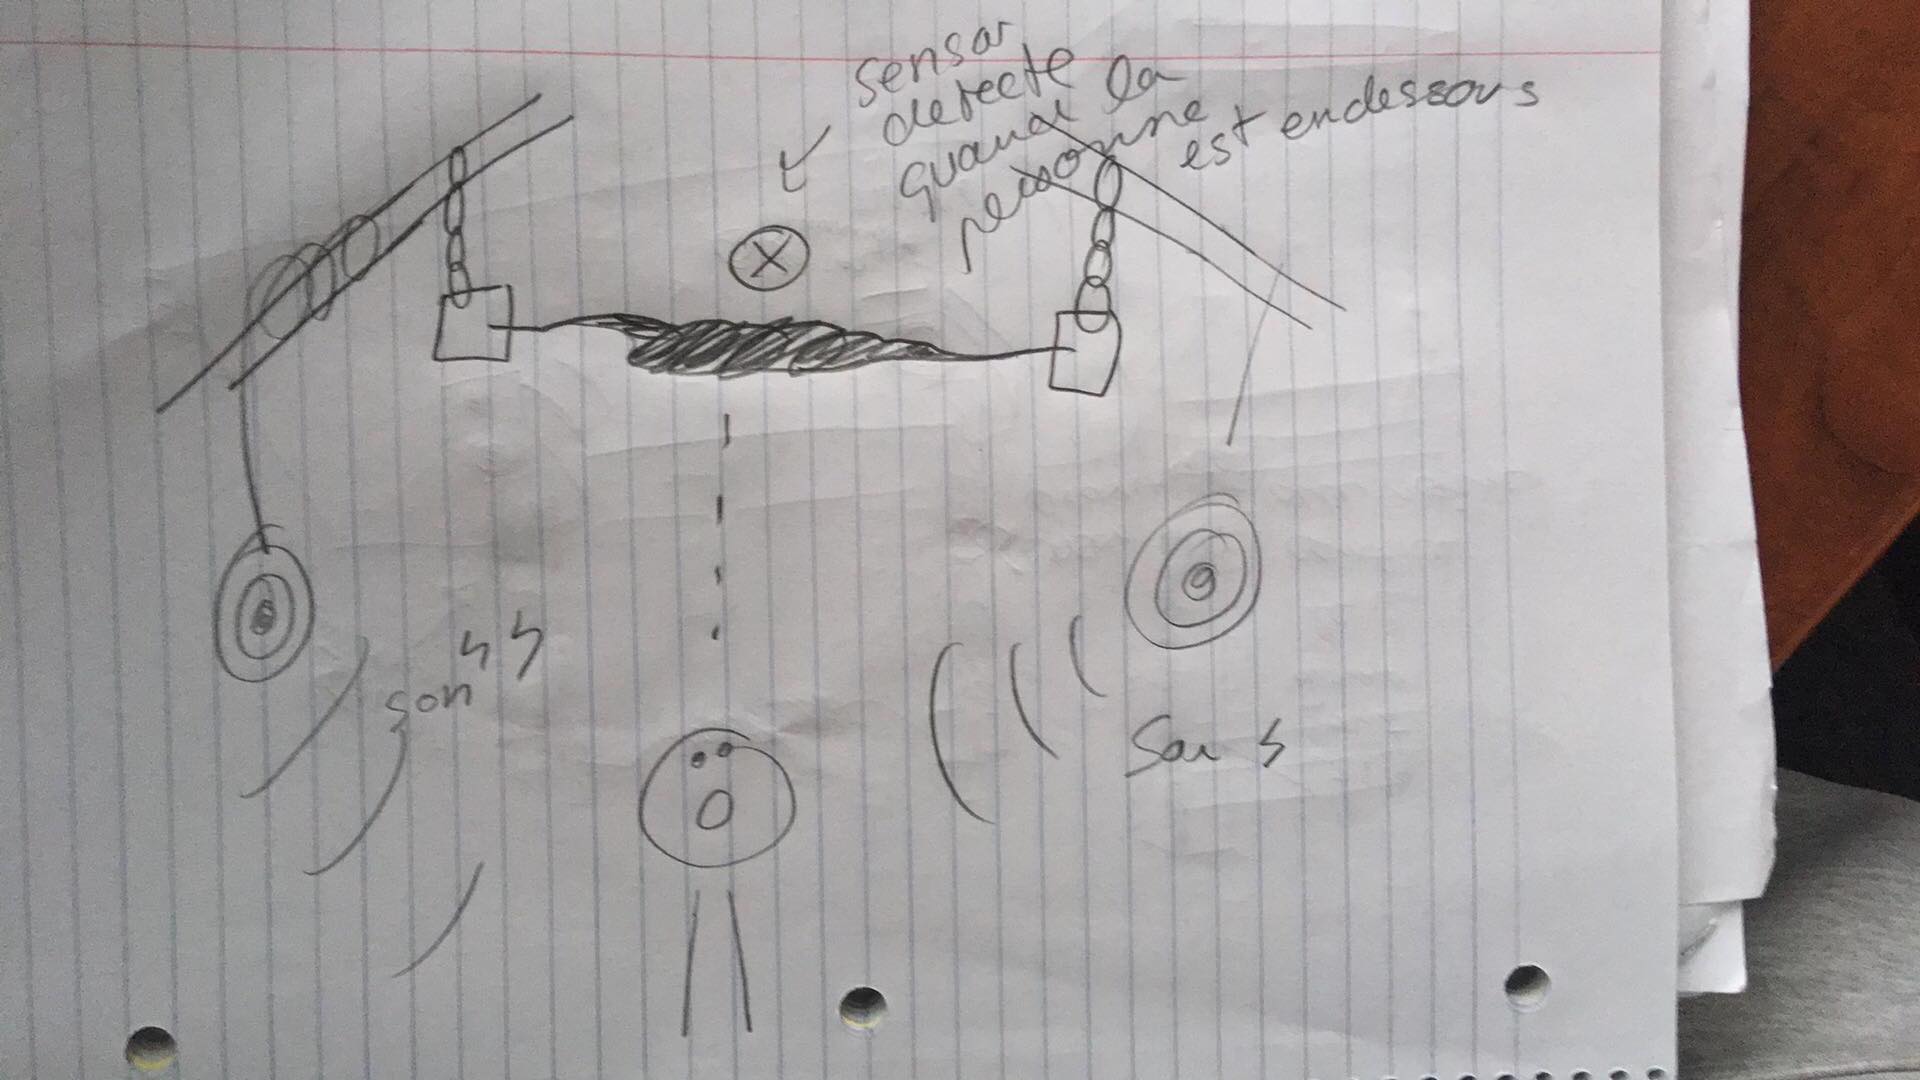 sensor
detecte
quand la
personne
est endessous
son
Son